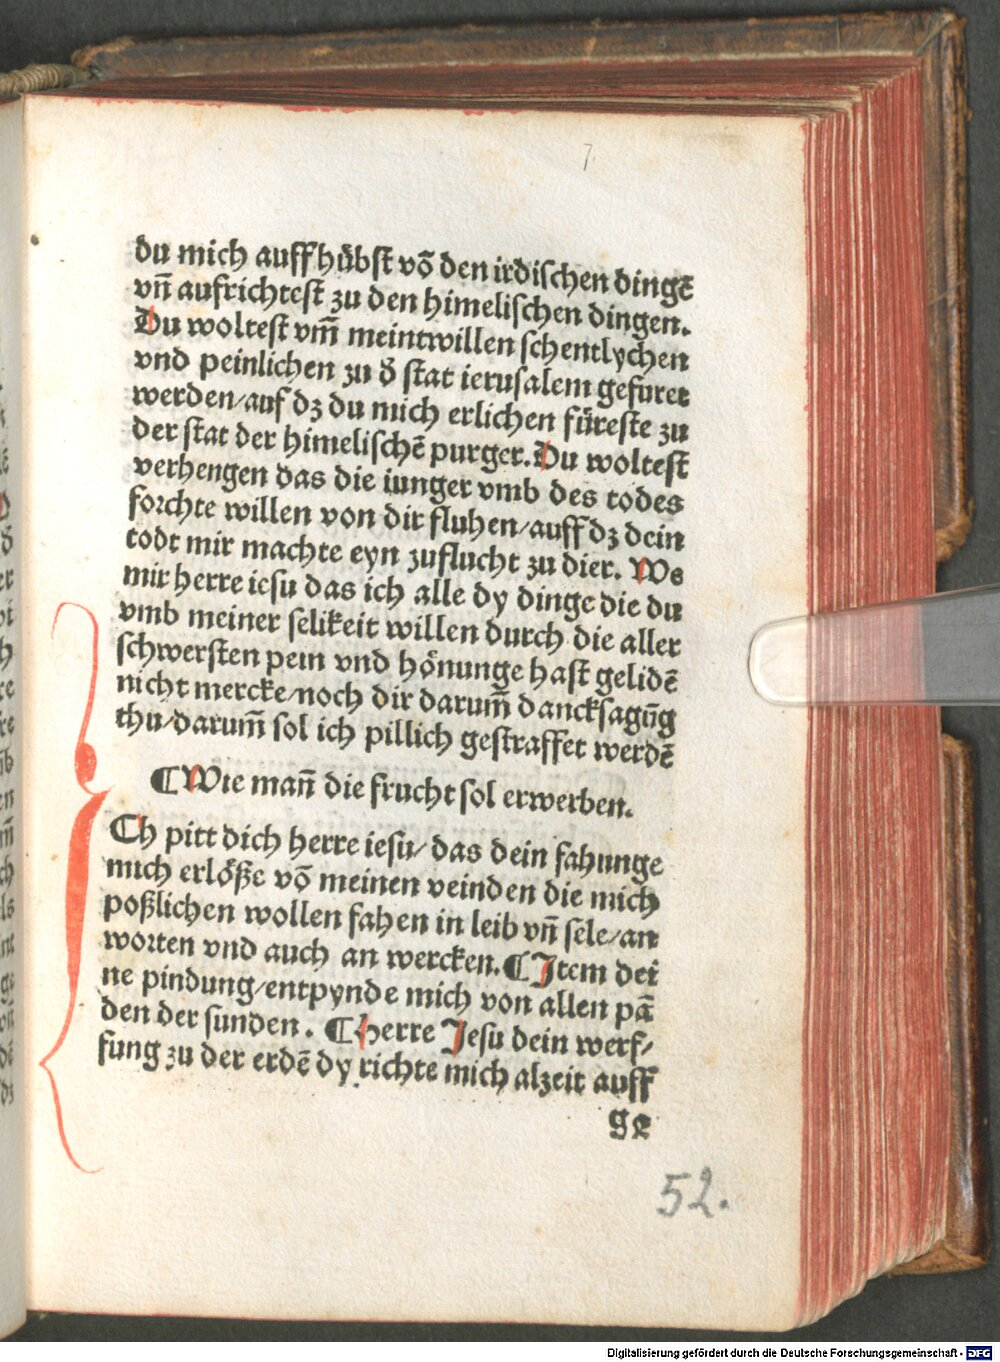 7
du mich auff hübst võ den irdischen dingẽ
vñ aufrichtest zu den himelischen dingen.
Du woltest vm̃ meintwillen schentlychen
vnd peinlichen zu d̕ stat ierusalem gefuret
werden/auf dz du mich erlichen füreste zu
der stat der himelischẽ purger. Du woltest
verhengen das die iunger vmb des todes
forchte willen von dir fluhen/auff dz dein
todt mir machte eyn zuflucht zu dier. We
mir herre iesu das ich alle dy dinge die du
vmb meiner selikeit willen durch die aller
schwersten pein vnd hönunge hast gelidẽ
nicht mercke/noch dir darum̃ dancksagũg
thu/darum̃ sol ich pillich gestraffet werdẽ
¶ Wie mañ die frucht sol erwerben.
Ch pitt dich herre iesu/ das dein fahunge
mich erlöße võ meinen veinden die mich
poßlichen wollen fahen in leib vñ sele/an
worten vnd auch an wercken. ¶ Item dei
ne pindung/entpynde mich von allen pã
den der sunden. ¶ Herre Jesu dein werf/
fung zu der erdẽ dy richte mich alzeit auff
52.
Digitalisierung gefördert durch die Deutsche Forschungsgemeinschaft - DFG